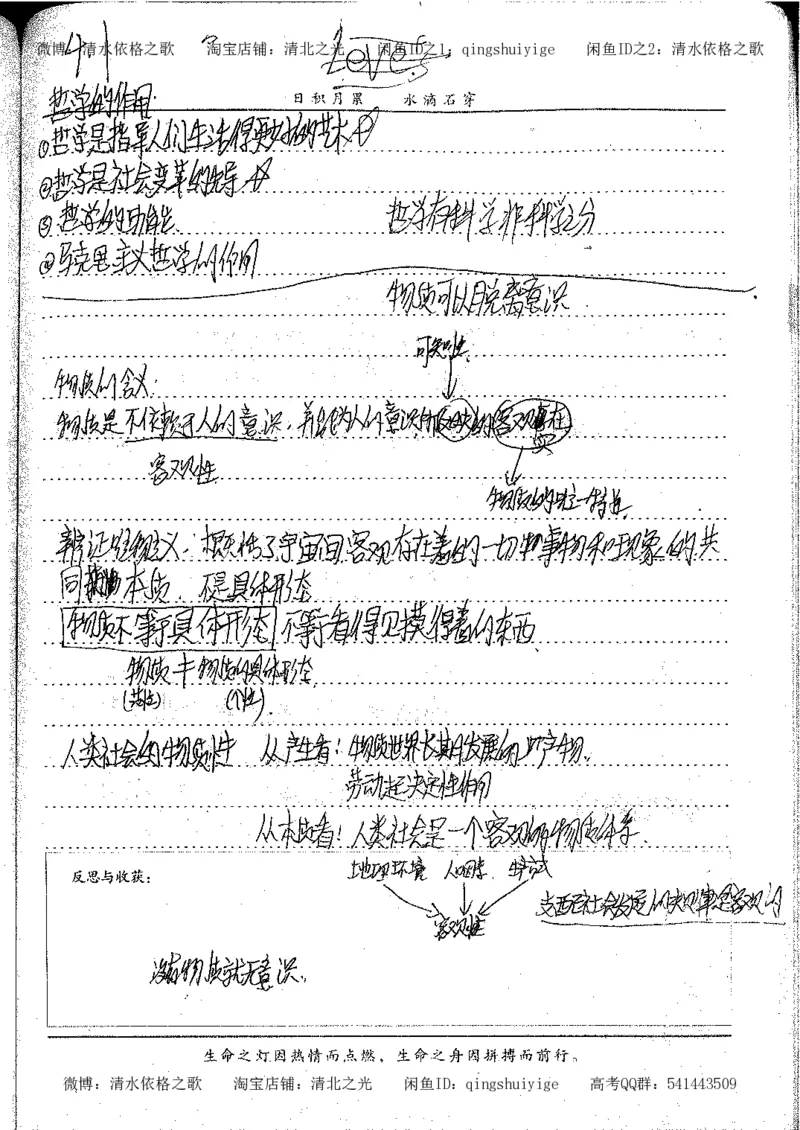 微博：清水依格之歌 淘宝店铺：清北之光 闲鱼ID之1：qingshuiyige 闲鱼ID之2：清水依格之歌
4.1
Love
日积月累 水滴石穿
哲学的作用
①哲学是指导人们生活得更好的艺术
②哲学是社会变革的先导
③哲学的功能
哲学有科学非科学之分
④马克思主义哲学的作用
物质可以脱离意识
可知性
物质的含义：
物质是不依赖于人的意识，并能为人的意识所反映的客观实在
客观性
物质的唯一特性
辨证唯物主义：概括了宇宙间客观存在着的一切事物和现象的共
同本质 不是具体形态
物质不等于具体形态 不等于看得见摸得着的东西
物质≠物质的具体形态
(共性) (个性)
人类社会的物质性 从产生看：物质世界长期发展的产物
劳动起决定性作用
从本质看：人类社会是一个客观的物质体系
反思与收获：
地理环境 人口因素 生产方式
客观性
支配社会发展的规律是客观的
没有物质就无意识
生命之灯因热情而点燃，生命之舟因拼搏而前行。
微博：清水依格之歌 淘宝店铺：清北之光 闲鱼ID：qingshuiyige 高考QQ群：541443509